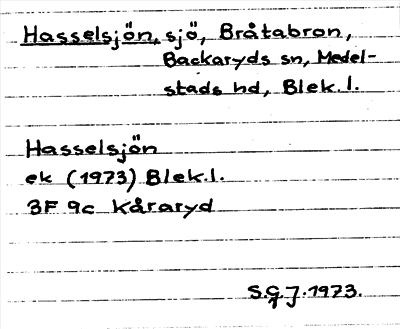 Hasselsjön, sjö, Bråtabron,
Backaryds sn, Medel-
stads hd, Blek. l.
Hasselsjön
ek (1973) Blek. l.
3F 9c Kåraryd
S.G.J. 1973.